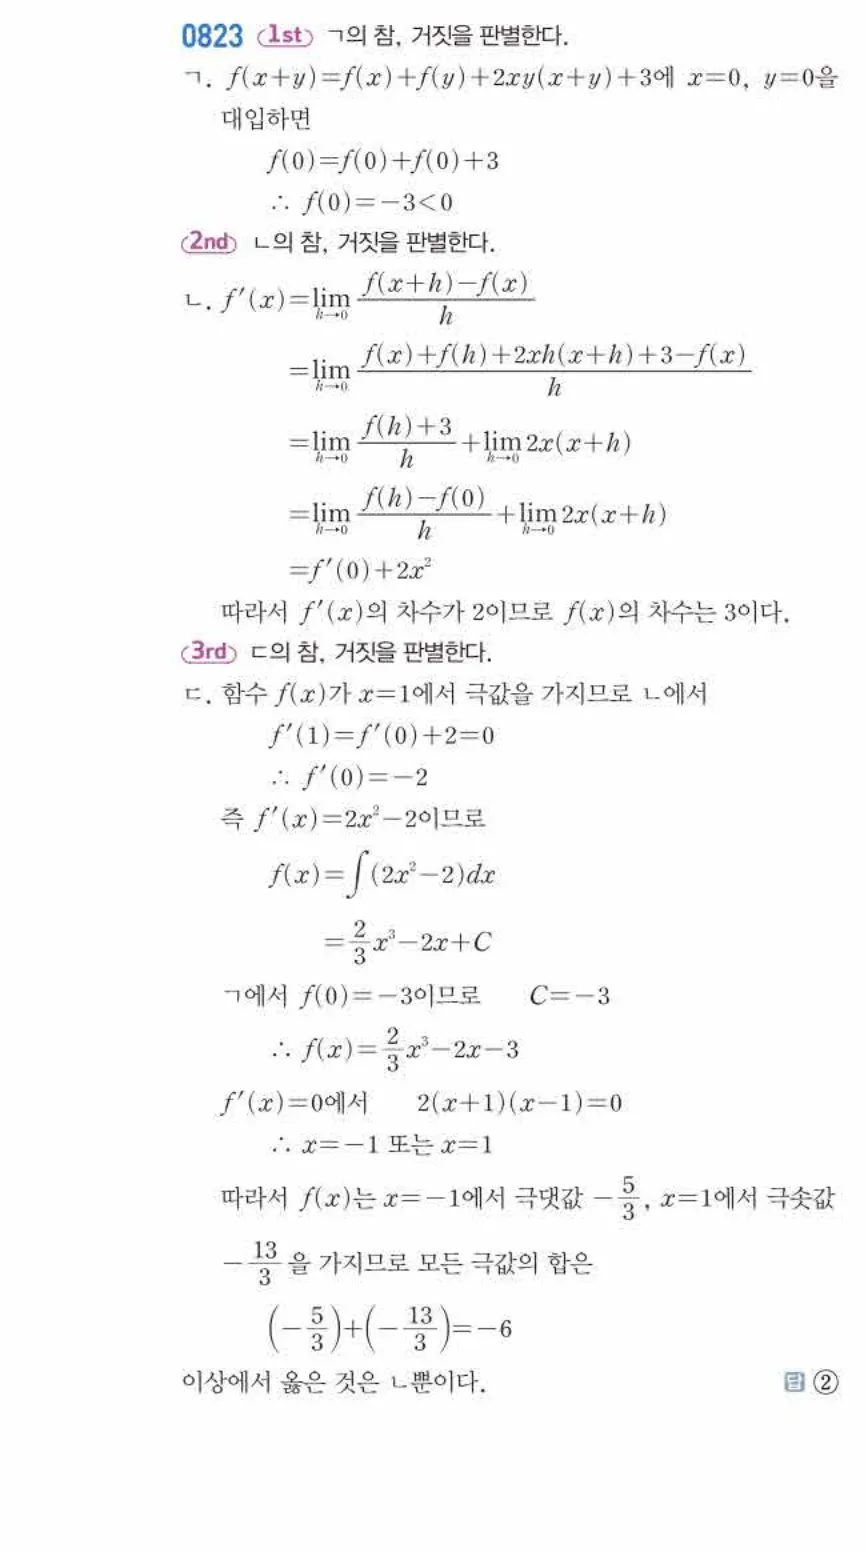 0823 1st ㄱ의 참, 거짓을 판별한다.
ㄱ. f(x+y)=f(x)+f(y)+2xy(x+y)+3에 x=0, y=0을
대입하면
f(0)=f(0)+f(0)+3
∴ f(0)=-3<0
2nd ㄴ의 참, 거짓을 판별한다.
ㄴ. f'(x)=lim_{h→0} \frac{f(x+h)-f(x)}{h}
=lim_{h→0} \frac{f(x)+f(h)+2xh(x+h)+3-f(x)}{h}
=lim_{h→0} \frac{f(h)+3}{h}+lim_{h→0} 2x(x+h)
=lim_{h→0} \frac{f(h)-f(0)}{h}+lim_{h→0} 2x(x+h)
=f'(0)+2x²
따라서 f'(x)의 차수가 2이므로 f(x)의 차수는 3이다.
3rd ㄷ의 참, 거짓을 판별한다.
ㄷ. 함수 f(x)가 x=1에서 극값을 가지므로 ㄴ에서
f'(1)=f'(0)+2=0
∴ f'(0)=-2
즉 f'(x)=2x²-2이므로
f(x)=∫(2x²-2)dx
=\frac{2}{3}x³-2x+C
ㄱ에서 f(0)=-3이므로 C=-3
∴ f(x)=\frac{2}{3}x³-2x-3
f'(x)=0에서 2(x+1)(x-1)=0
∴ x=-1 또는 x=1
따라서 f(x)는 x=-1에서 극댓값 -\frac{5}{3}, x=1에서 극솟값
-\frac{13}{3}을 가지므로 모든 극값의 합은
(-\frac{5}{3})+(-\frac{13}{3})=-6
이상에서 옳은 것은 ㄴ뿐이다. 답 ②